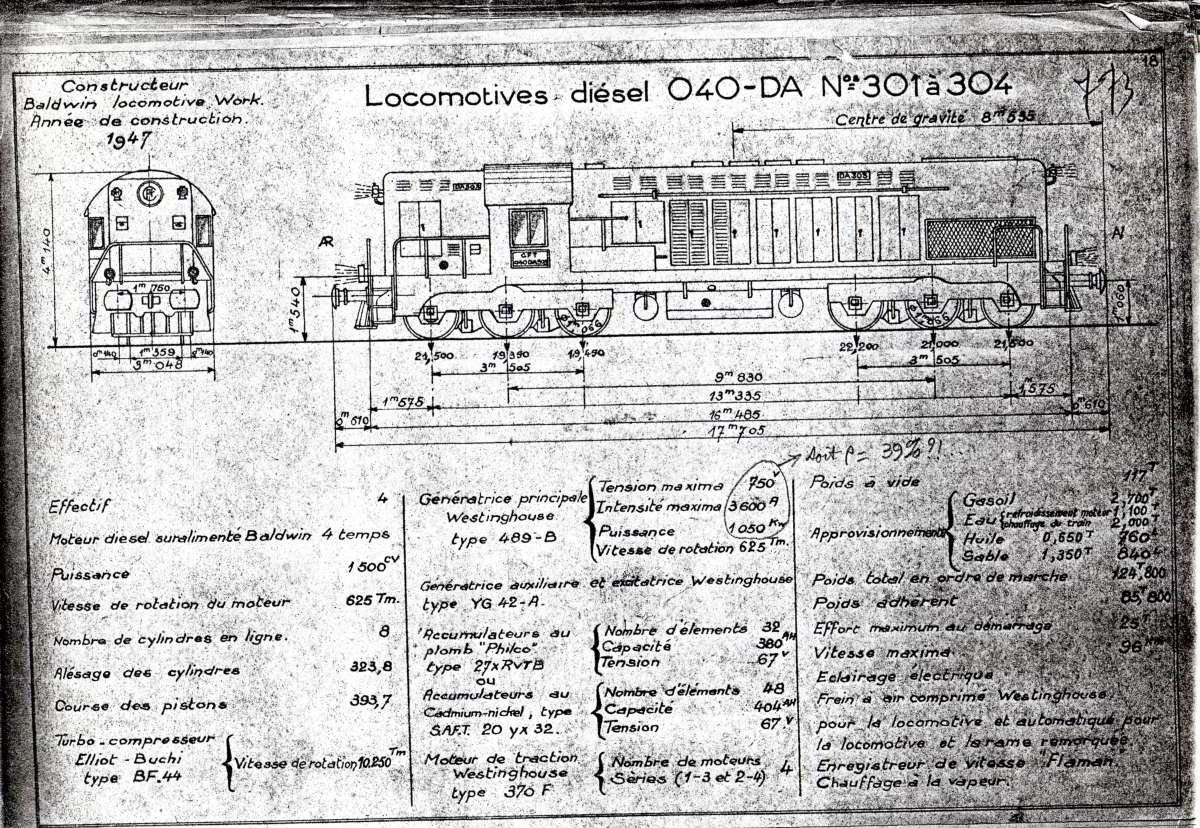 18
Constructeur
Baldwin locomotive Work.
Année de construction.
1947
Locomotives diésel 040-DA Nos 301 à 304
773
Centre de gravité 8m 535
DA 303
DA 303
C.F.T
AR
4m 140
1m 760
1m 540
1m 060
0m 140
1m 359
0m 140
3m 048
21,500
19,390
19,490
22,200
21,000
21,500
3m 505
3m 505
9m 830
1m 575
13m 335
1m 575
0m 610
16m 485
0m 610
17m 705
soit ρ = 39% ?!...
Effectif 4
Moteur diesel suralimenté Baldwin 4 temps
Puissance 1500 CV
Vitesse de rotation du moteur 625 Tm.
Nombre de cylindres en ligne. 8
Alésage des cylindres 323,8
Course des pistons 393,7
Turbo-compresseur
Elliot-Buchi
type BF.44
Vitesse de rotation 10.250 Tm
Génératrice principale
Westinghouse
type 489-B
Tension maxima 750 V
Intensité maxima 3600 A
Puissance 1050 Kw
Vitesse de rotation 625 Tm.
Génératrice auxiliaire et exitatrice Westinghouse
type YG 42-A.
Accumulateurs au
plomb "Philco"
type 27xRVTB
Nombre d'élements 32
Capacité 380 AH
Tension 67 V
ou
Accumulateurs au
Cadmium-nickel, type
S.A.F.T. 20 yx 32.
Nombre d'éléments 48
Capacité 404 AH
Tension 67 V
Moteur de traction
Westinghouse
type 370 F
Nombre de moteurs
Séries (1-3 et 2-4) 4
Poids à vide 117 T
Approvisionnements
Gasoil 2,700 T
Eau
refroidissement moteur 1,100 T
chauffage du train 2,000 T
Huile 0,650 T 760 L
Sable 1,350 T 840 L
Poids total en ordre de marche 124 T,800
Poids adhérent 85 T 800
Effort maximum au démarrage 25 T
Vitesse maxima. 96
Eclairage électrique
Frein à air comprimé Westinghouse
pour la locomotive et automatique pour
la locomotive et la rame remorquée.
Enregistreur de vitesse Flaman.
Chauffage à la vapeur.